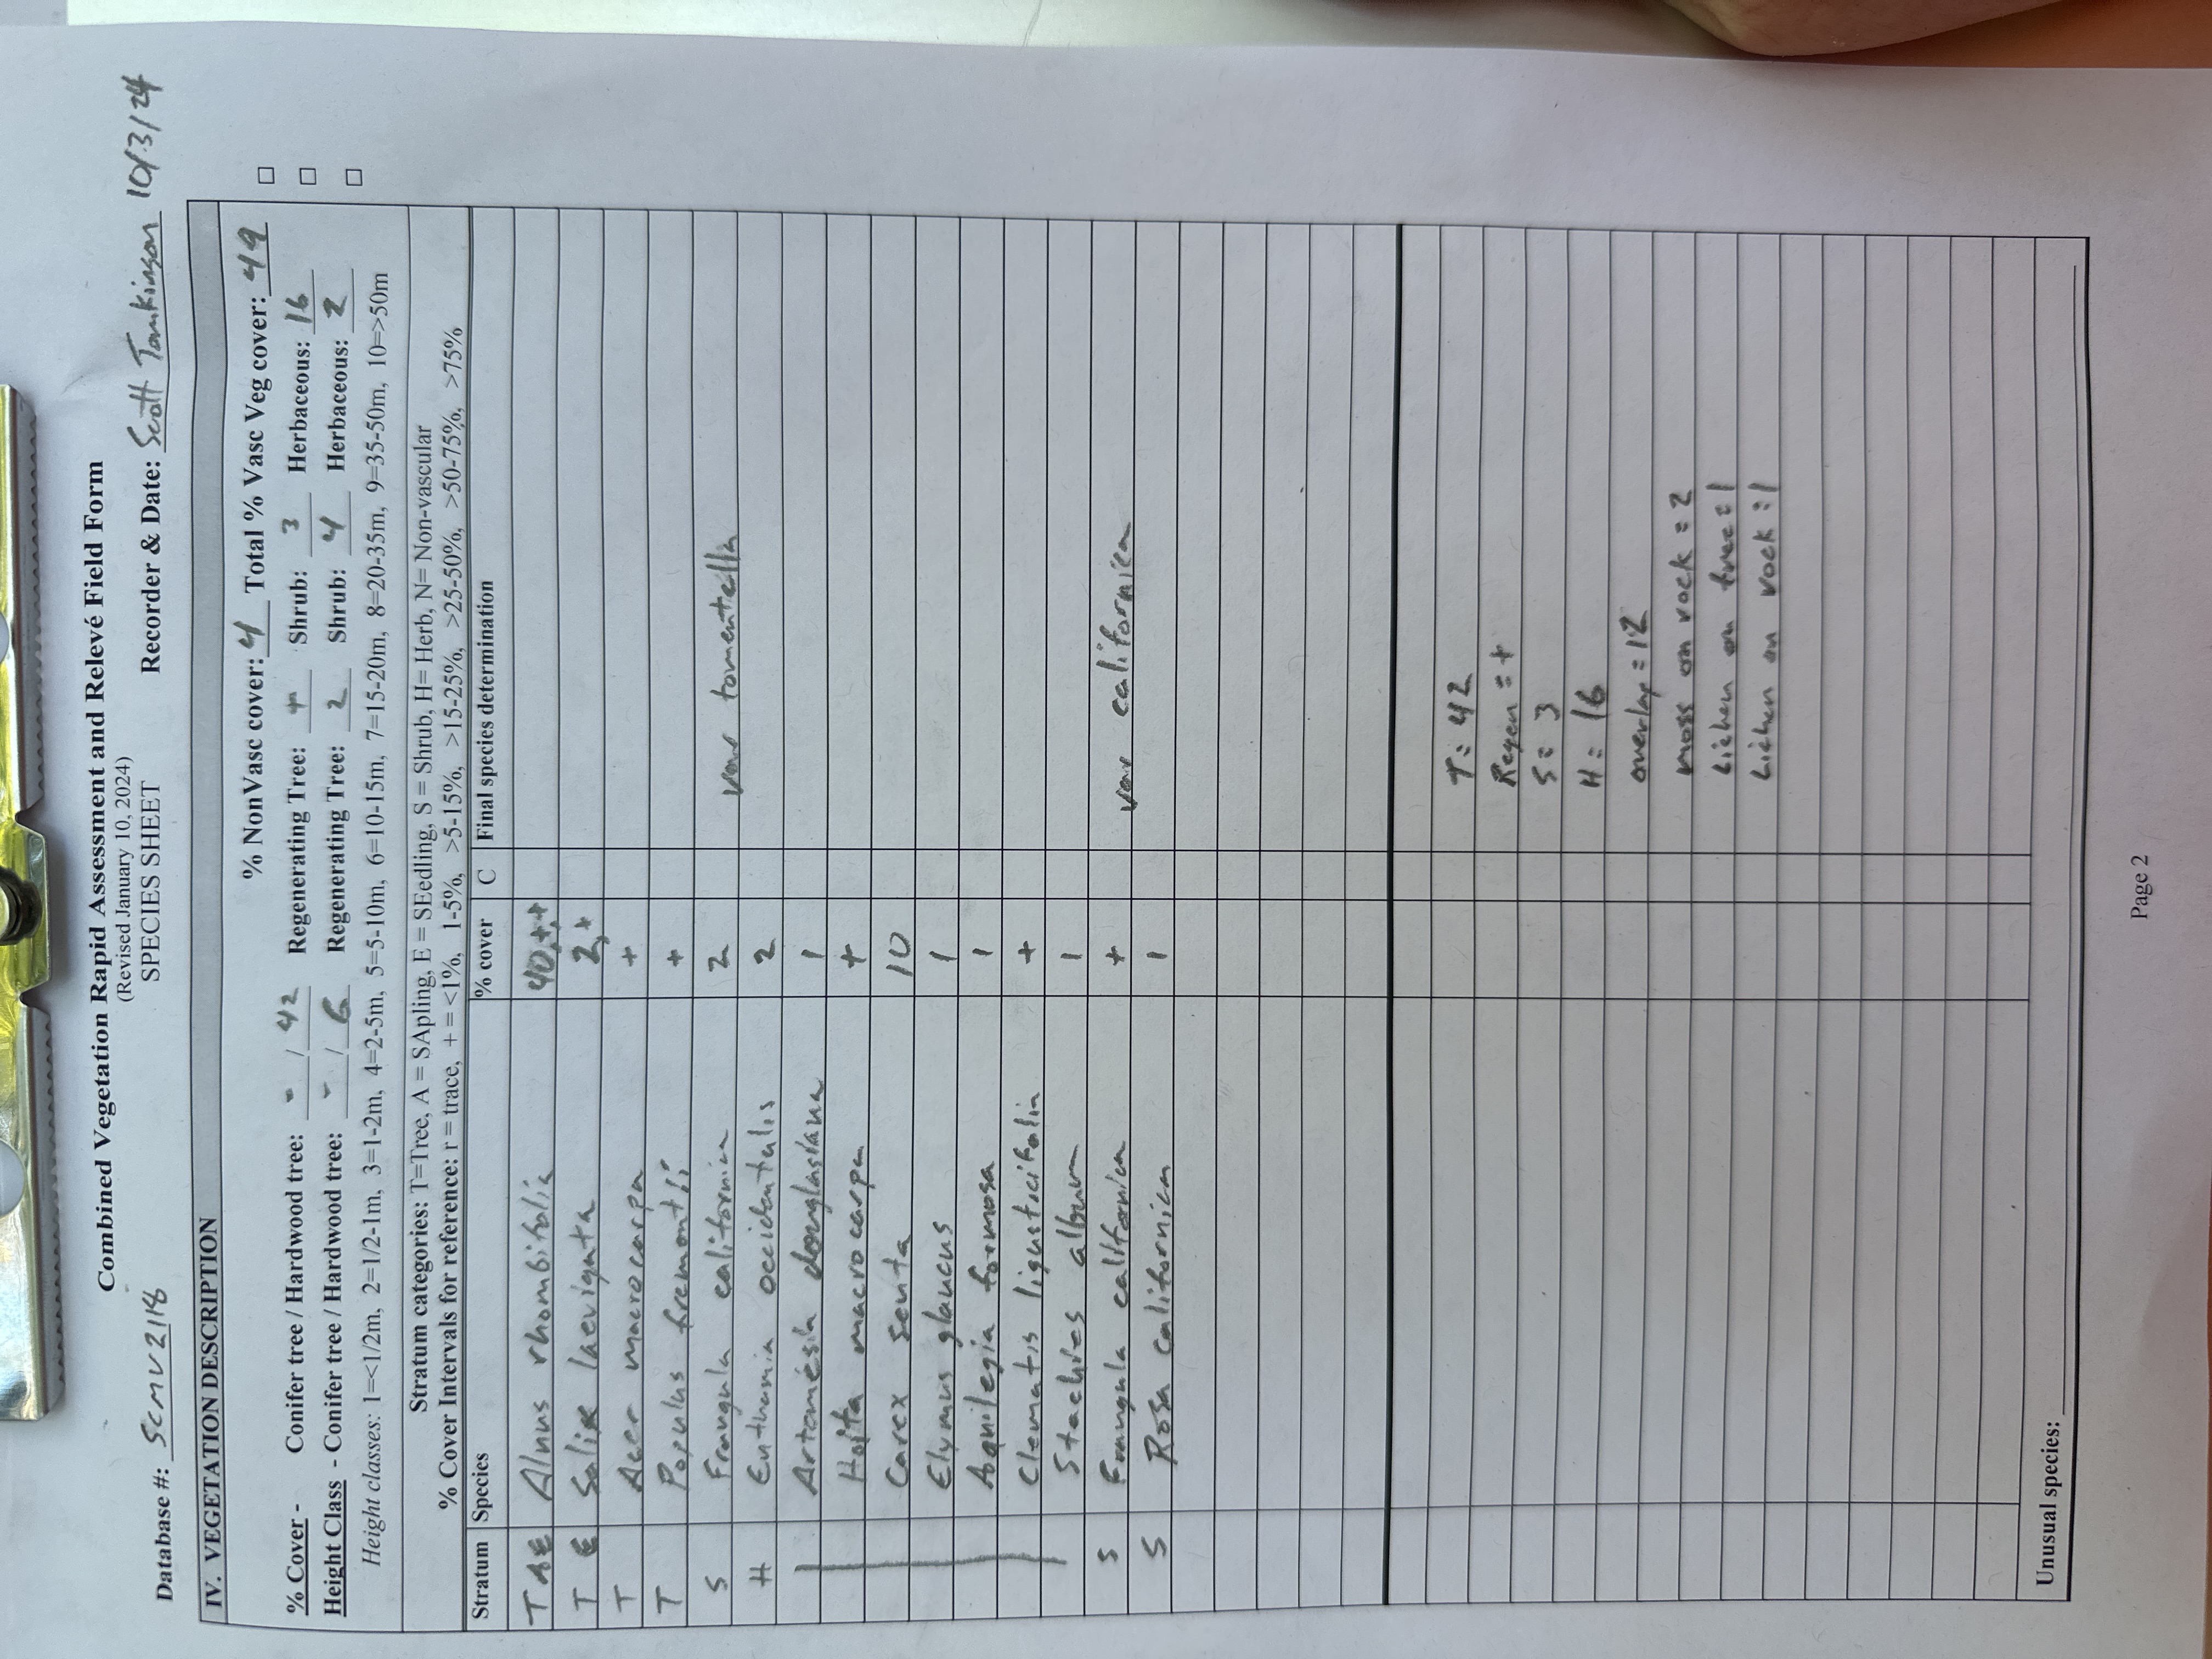 Combined Vegetation Rapid Assessment and Relevé Field Form
(Revised January 10, 2024)
SPECIES SHEET
Database #: SCMV2118 Recorder & Date: Scott Tomkinson 10/3/24
IV. VEGETATION DESCRIPTION
% NonVasc cover: 4 Total % Vasc Veg cover: 49 □
% Cover - Conifer tree / Hardwood tree: - / 42 Regenerating Tree: + Shrub: 3 Herbaceous: 16 □
Height Class - Conifer tree / Hardwood tree: - / 6 Regenerating Tree: 2 Shrub: 4 Herbaceous: 2 □
Height classes: 1=<1/2m, 2=1/2-1m, 3=1-2m, 4=2-5m, 5=5-10m, 6=10-15m, 7=15-20m, 8=20-35m, 9=35-50m, 10=>50m
Stratum categories: T=Tree, A = SApling, E = SEedling, S = Shrub, H= Herb, N= Non-vascular
% Cover Intervals for reference: r = trace, + = <1%, 1-5%, >5-15%, >15-25%, >25-50%, >50-75%, >75%
Stratum Species % cover C Final species determination
T A E Alnus rhombifolia 40,+,+
T E Salix laevigata 2,+
T Acer macrocarpa +
T Populus fremontii +
S Frangula californica 2 var tomentella
H Euthamia occidentalis 2
Artemesia douglasiana 1
Hoita macrocarpa +
Carex senta 10
Elymus glaucus 1
Aquilegia formosa 1
Clematis ligusticifolia +
Stachies album 1
S Frangula californica + var californica
S Rosa californica 1
T = 42
Regen = +
S = 3
H = 16
overlap = 12
moss on rock = 2
Lichen on tree = 1
Lichen on rock = 1
Unusual species:
Page 2